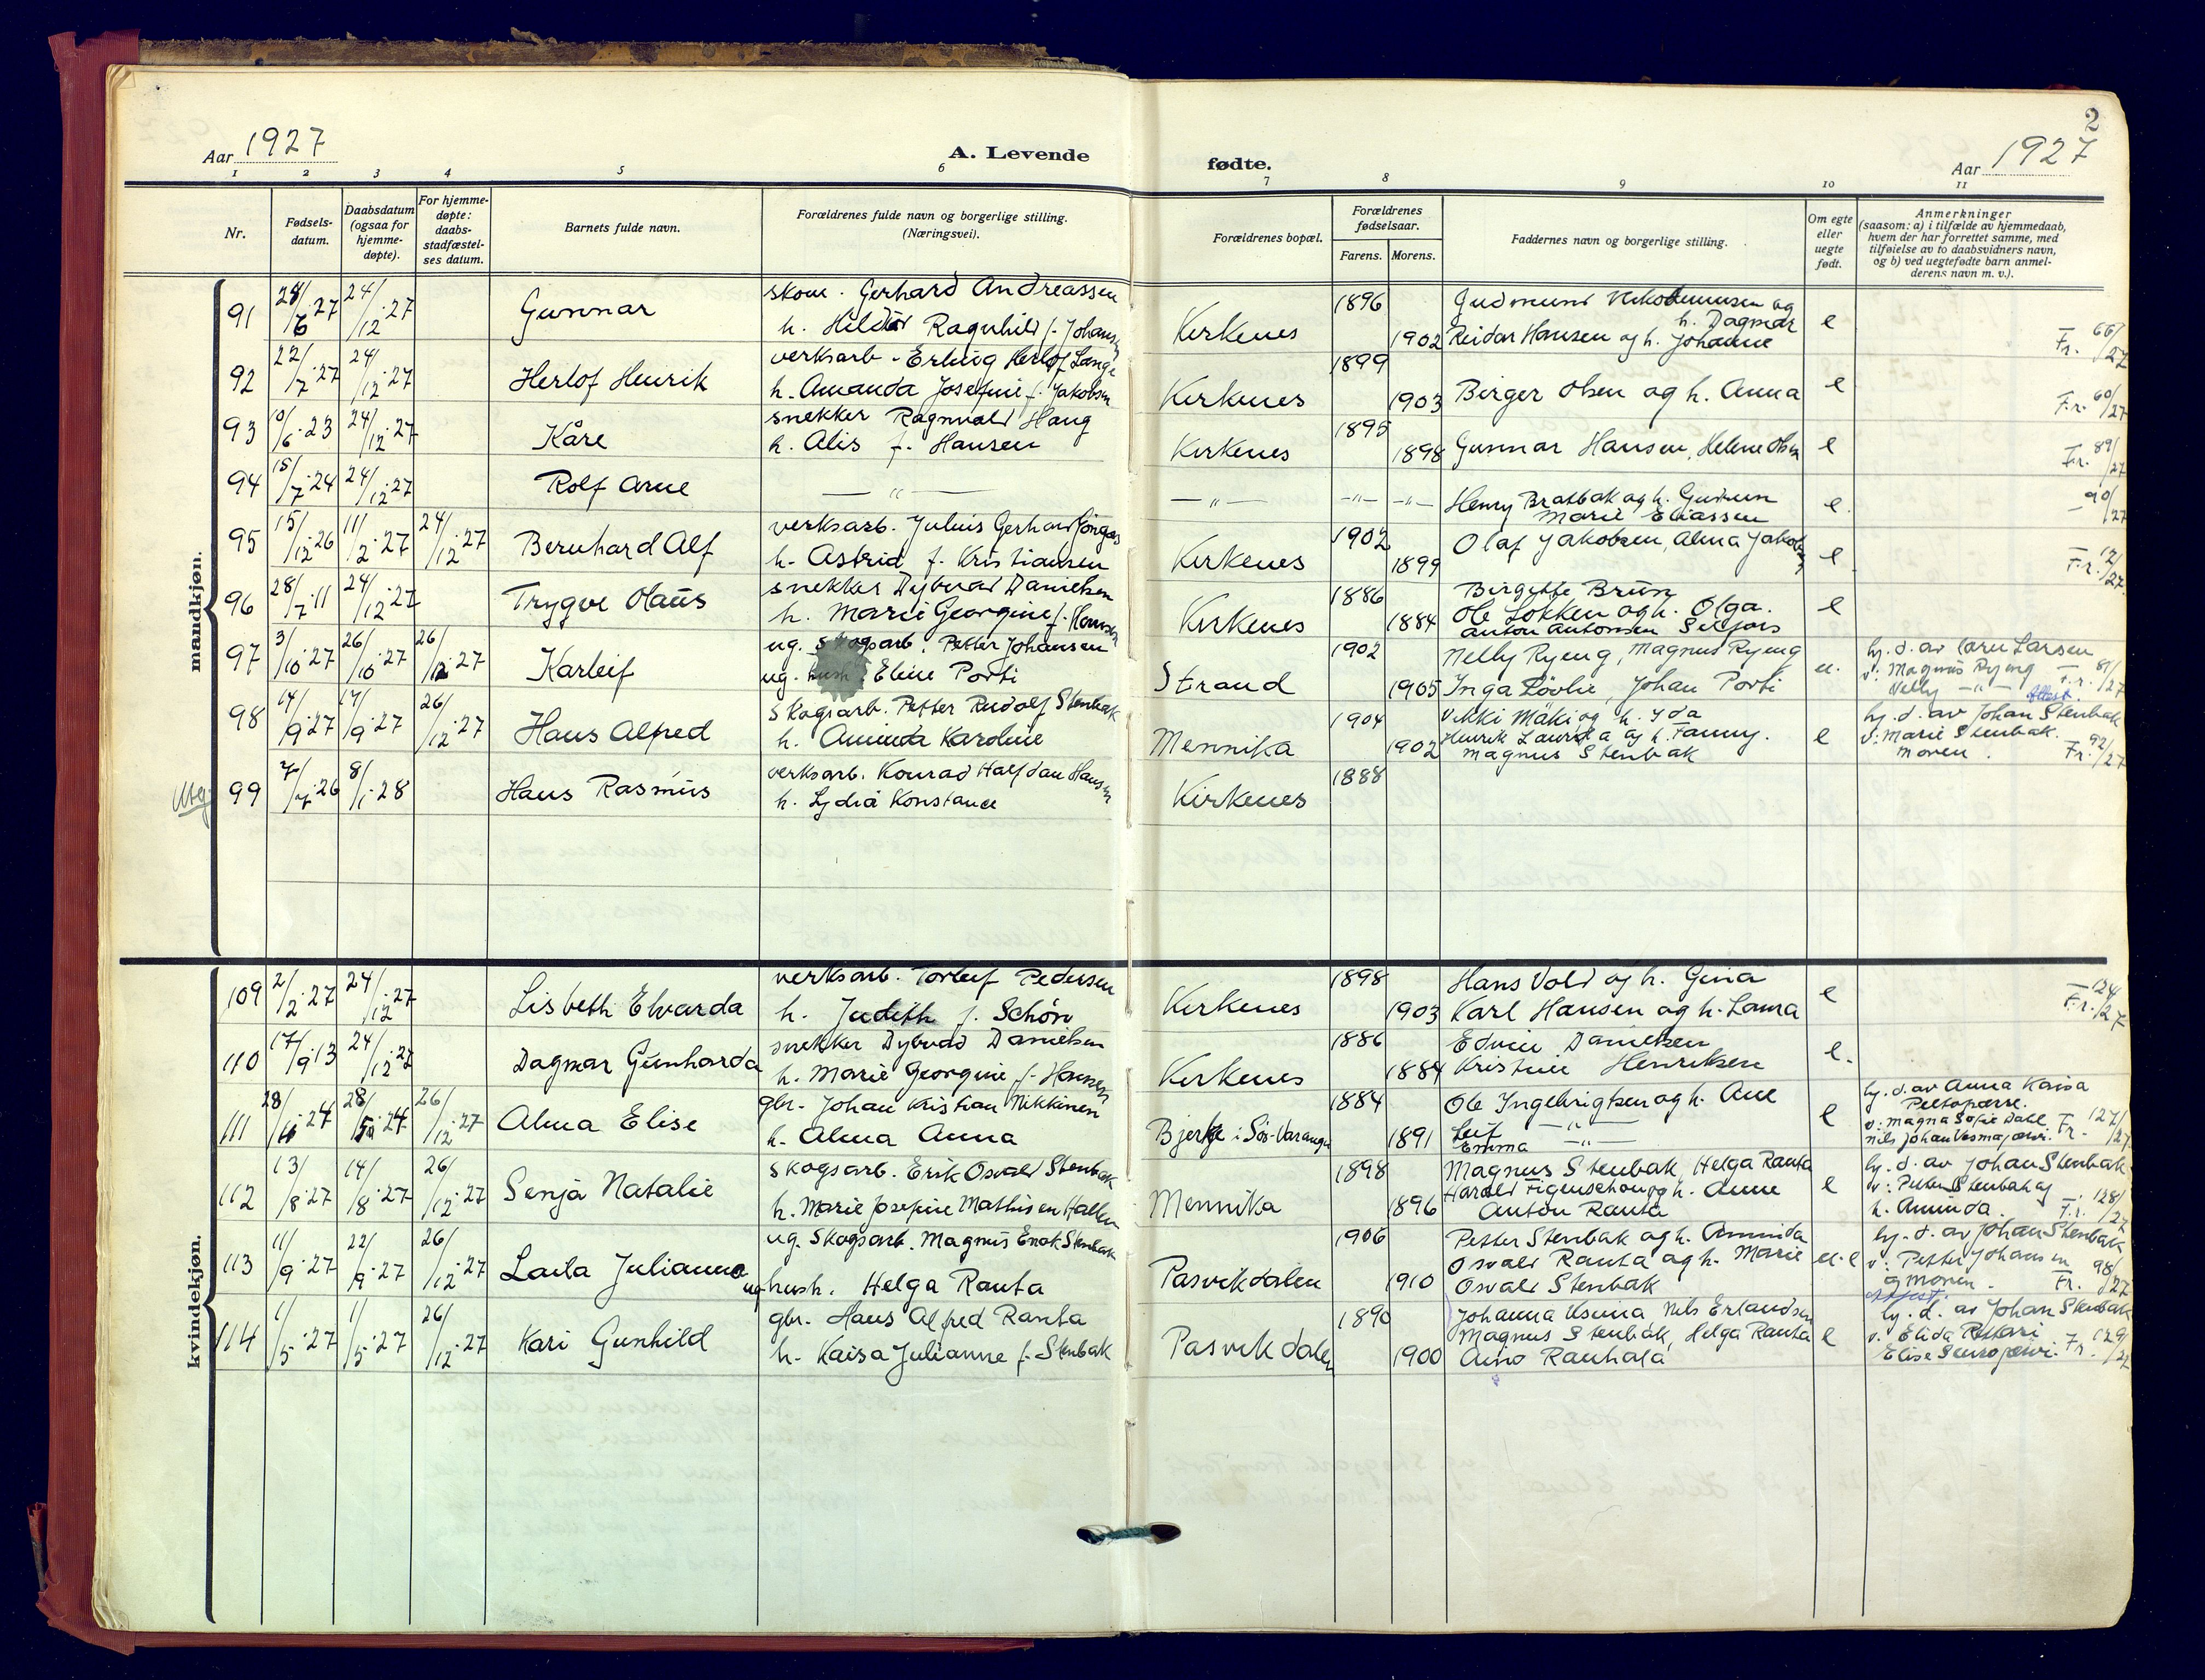 2
Aar 1927
A. Levende
fødte.
Aar 1927
1 2 3 4 5 6 7 8 9 10 11
Nr.
Fødsels-
datum.
Daabsdatum
(ogsaa for
hjemme-
døpte).
For hjemme-
døpte:
daabs-
stadfæstel-
ses datum.
Barnets fulde navn.
Forældrenes fulde navn og borgerlige stilling.
(Næringsvei).
Forældrenes bopæl.
Forældrenes
fødselsaar.
Farens. Morens.
Faddernes navn og borgerlige stilling.
Om egte
eller
uegte
født.
Anmerkninger
(saasom: a) i tilfælde av hjemmedaab,
hvem der har forrettet samme, med
tilføielse av to daabsvidners navn,
og b) ved uegtefødte barn anmel-
derens navn m. v.).
mandkjøn.
91 24/12·27 Gunnar
Gerhard Andreassen
h. Ragnhild f. Johansen
Kirkenes 1896 1902
og h. Dagmar
Reidar Hansen og h. Johanne
e
Fr. 66/27
92 22/7·27 24/12·27 Herlof Henrik
verksarb. Erling Herlof Lange
h. Amanda Josefine f. Jakobsen
Kirkenes 1899 1903
Birger Olsen og h. Anna
e
F.r. 60/27
93 24/12·27 Kåre
snekker Ragnvald Haug
h. Alis f. Hansen
Kirkenes 1895 1898
Gunnar Hansen, Helene Olsen
e
F.r. 89/27
94 15/7·24 24/12·27 Rolf Arne
— " —
— " — — " — — " —
Henry Bratbak og h. Gudrun
Marie Eliassen
e.
90/27
95 15/12·26 11/2·27 24/12·27 Bernhard Alf
verksarb. Julius Gerhard
h. Astrid f. Kristiansen
Kirkenes 1902 1899
Olaf Jakobsen, Alma Jakobsen
e
F.r. 12/27
96 28/7·11 24/12·27 Trygve Olaus
snekker Dybvad Danielsen
h. Marie Georgine f. Hansen
Kirkenes 1886 1884
Birgitte Brun
Ole Løkken og h. Olga.
Anton Antonsen Selfors
e
97 3/10·27 26/10·27 26/12·27 Karleif
ug. skogsarb. Petter Johansen
ug. hush. Eline Porti
Strand 1902 1905
Nelly Ryeng, Magnus Ryeng
Inga Løvlie, Johan Porti
u.
hj. d. av Larsen
v: Magnus Ryeng
Nelly — " —
F.r. 81/27
Attest.
98 14/9·27 17/9·27 26/12·27 Hans Alfred
Skogsarb. Petter Rudolf Stenbak
h. Aminda Karoline
Mennika 1904 1902
Vikki Mäki og h. Ida
Henrik Laurila og h. Fanny.
Magnus Stenbak
e
hj. d. av Johan Stenbak
v: Marie Stenbak.
moren.
Fr. 92/27
Utg. 99 8/1·28 Hans Rasmus
verksarb. Konrad Halfdan Hansen
h. Lydia Konstance
Kirkenes 1888
kvindekjøn.
109 2/2·27 24/12·27 Lisbeth Elvarda
verksarb. Torleif Pedersen
h. Judith f. Schön
Kirkenes 1898 1903
Hans Vold og h. Gina
Karl Hansen og h. Laura
e
F.r. 124/27
110 17/9·13 24/12·27 Dagmar Gunharda
snekker Dybvad Danielsen
h. Marie Georgine f. Hansen
Kirkenes 1886 1884
Edvin Danielsen
Kristine Henriksen
e.
111 26/12·27 Alma Elise
gbr. Johan Kristian Nikkinen
h. Alma Anna
Bjerke i Sør-Varanger 1884 1891
Ole Ingebrigtsen og h. Ane
Leif — " —
Emma — " —
e
hj. d. av Anna Kaisa
v: Magna Sofie Dahl
Nils Johan
Fr. 127/27
112 13/8·27 14/8·27 26/12·27 Senja Natalie
skogsarb. Erik Osvald Stenbak
h. Marie Josefine Mathisen Hallen
Mennika 1898 1896
Magnus Stenbak, Helga Ranta
Harald Figenschou og h. Anne
Anton Ranta
e
hj. d. av Johan Stenbak
v: Petter Stenbak og
h. Aminda.
F.r. 128/27
113 11/9·27 22/9·27 26/12·27 Laila Julianne
ug. Skogsarb. Magnus Enok Stenbak
ug hush. Helga Ranta
Pasvikdalen 1906 1910
Petter Stenbak og h. Aminda
Osvald Ranta og h. Marie
Osvald Stenbak
u.e
hj. d. av Johan Stenbak
v: Petter Johansen
og moren.
Fr. 98/27
Attest.
114 1/5·27 1/5·27 26/12·27 Kari Gunhild
gbr. Hans Alfred Ranta
h. Kaisa Julianne f. Stenbak
Pasvikdalen 1890 1900
Johanna Nils Erlandsen
Magnus Stenbak, Helga Ranta
Aino Rauhala
e
hj. d. av Johan Stenbak
v. Elida
Elise
Fr. 129/27